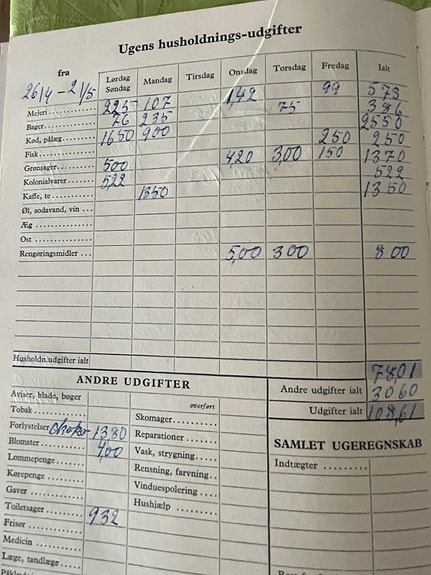 Ugens husholdnings-udgifter
fra 26/4 - 2/5 Lørdag Søndag Mandag Tirsdag Onsdag Torsdag Fredag Ialt
Mejeri 225 107 1,42 99 573
Bager 76 235 75 386
Kød, pålæg 1650 900 2550
Fisk 250 250
Grønsager 500 420 3,00 150 1370
Kolonialvarer 522 522
Kaffe, te 1350 1350
Øl, sodavand, vin
Æg
Ost
Rengøringsmidler 5,00 300 8 00
Husholdn.udgifter ialt 7801
ANDRE UDGIFTER
Andre udgifter ialt 3060
Udgifter ialt 108,61
Aviser, blade, bøger
Tobak
Forlystelser 1380
Blomster
Lommepenge
Kørepenge
Gaver
Toiletsager 932
Frisør
Medicin
Læge, tandlæge
overført
Skomager
Reparationer
Vask, strygning
Rensning, farvning
Vinduespolering
Hushjælp
SAMLET UGEREGNSKAB
Indtægter